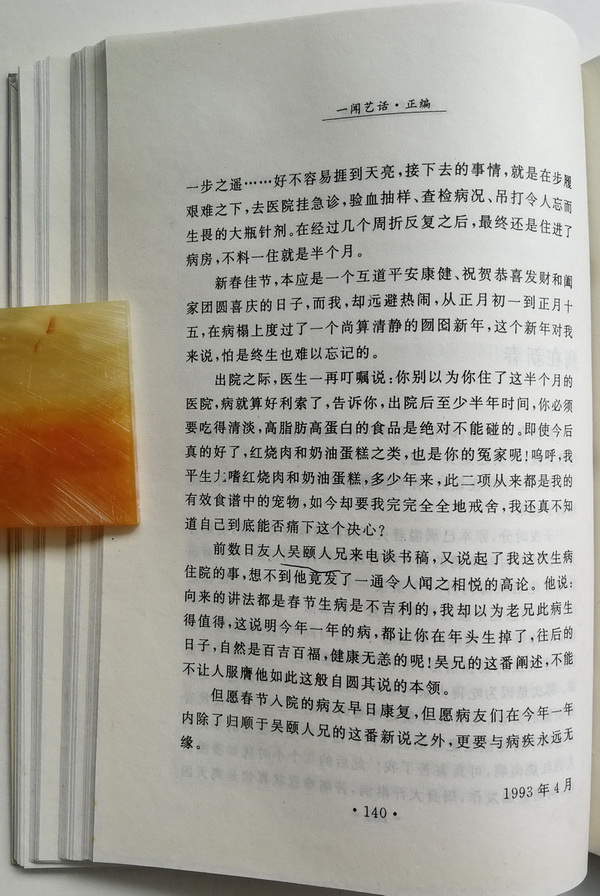 一闻艺话·正编
一步之遥……好不容易捱到天亮，接下去的事情，就是在步履
艰难之下，去医院挂急诊，验血抽样、查检病况、吊打令人忘而
生畏的大瓶针剂。在经过几个周折反复之后，最终还是住进了
病房，不料一住就是半个月。
新春佳节，本应是一个互道平安康健、祝贺恭喜发财和阖
家团圆喜庆的日子，而我，却远避热闹，从正月初一到正月十
五，在病榻上度过了一个尚算清静的囫囵新年，这个新年对我
来说，怕是终生也难以忘记的。
出院之际，医生一再叮嘱说：你别以为你住了这半个月的
医院，病就算好利索了，告诉你，出院后至少半年时间，你必须
要吃得清淡，高脂肪高蛋白的食品是绝对不能碰的。即使今后
真的好了，红烧肉和奶油蛋糕之类，也是你的冤家呢！呜呼，我
平生尢嗜红烧肉和奶油蛋糕，多少年来，此二项从来都是我的
有效食谱中的宠物，如今却要我完完全全地戒舍，我还真不知
道自己到底能否痛下这个决心？
前数日友人吴颐人兄来电谈书稿，又说起了我这次生病
住院的事，想不到他竟发了一通令人闻之相悦的高论。他说：
向来的讲法都是春节生病是不吉利的，我却以为老兄此病生
得值得，这说明今年一年的病，都让你在年头生掉了，往后的
日子，自然是百吉百福，健康无恙的呢！吴兄的这番阐述，不能
不让人服膺他如此这般自圆其说的本领。
但愿春节入院的病友早日康复，但愿病友们在今年一年
内除了归顺于吴颐人兄的这番新说之外，更要与病疾永远无
缘。
1993年4月
·140·